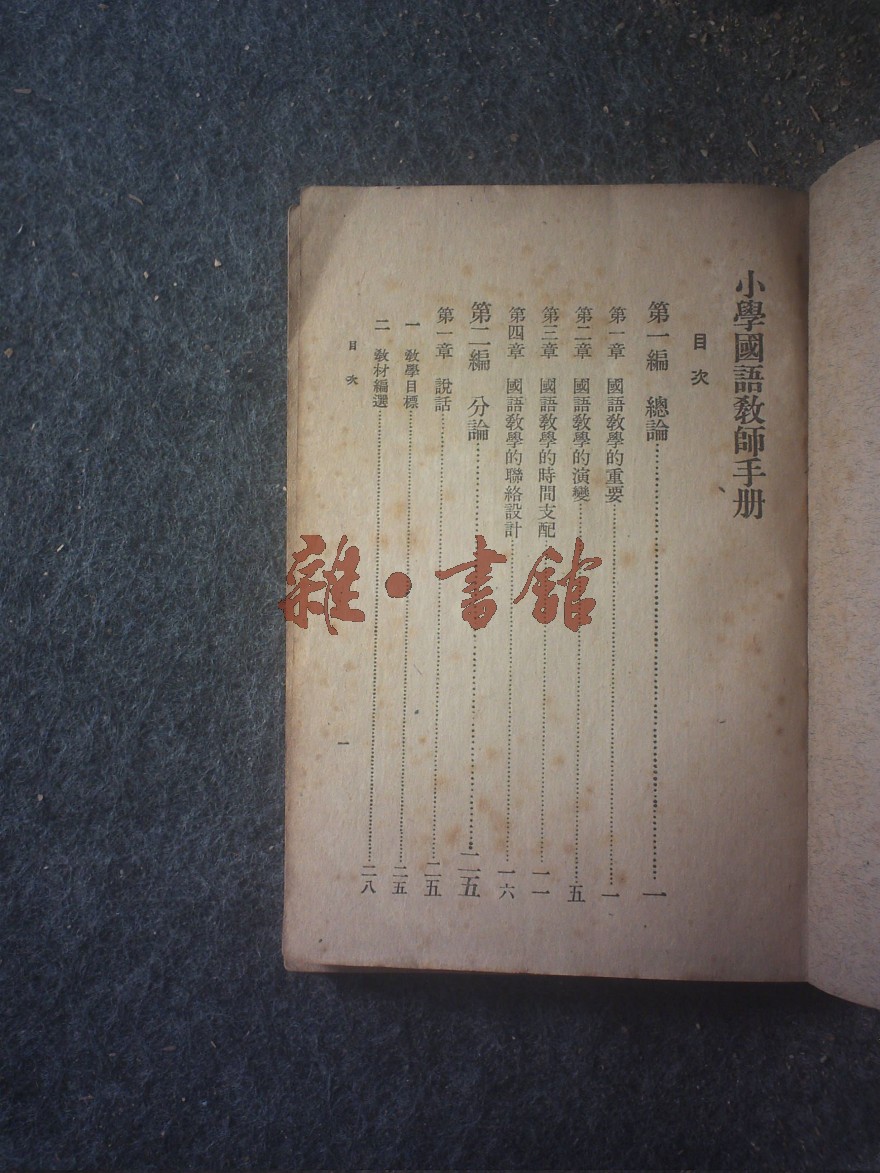 小學國語教師手册
目次
第一編 總論……一
第一章 國語教學的重要……一
第二章 國語教學的演變……五
第三章 國語教學的時間支配……一一
第四章 國語教學的聯絡設計……一六
第二編 分論……二五
第一章 說話……二五
一 教學目標……二五
二 教材編選……二八
目次
一
雜·書館